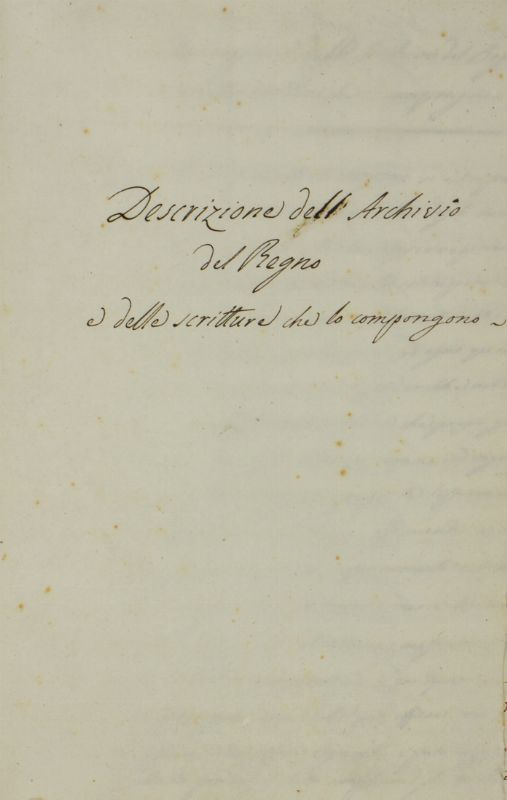 Descrizione dell'Archivio
del Regno
e delle scritture che lo compongono -